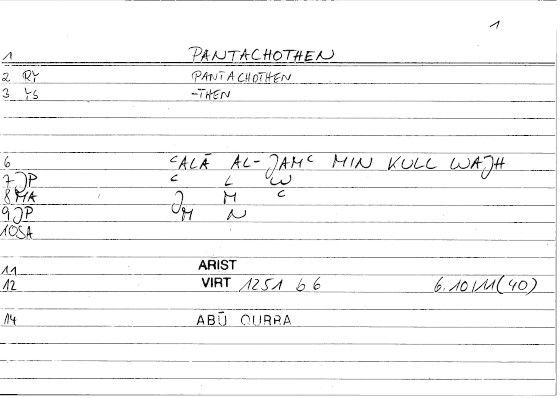 1
1 PANTACHOTHEN
2 RY PANTACHOTHEN
3 YS -THEN
6 ʿALĀ AL-JAMʿ MIN KULL WAJH
7 JP ʿ L W
8 MA J M ʿ
9 JP M N
10 SA
11 ARIST
12 VIRT 1251 b 6
14 ABŪ QURRA